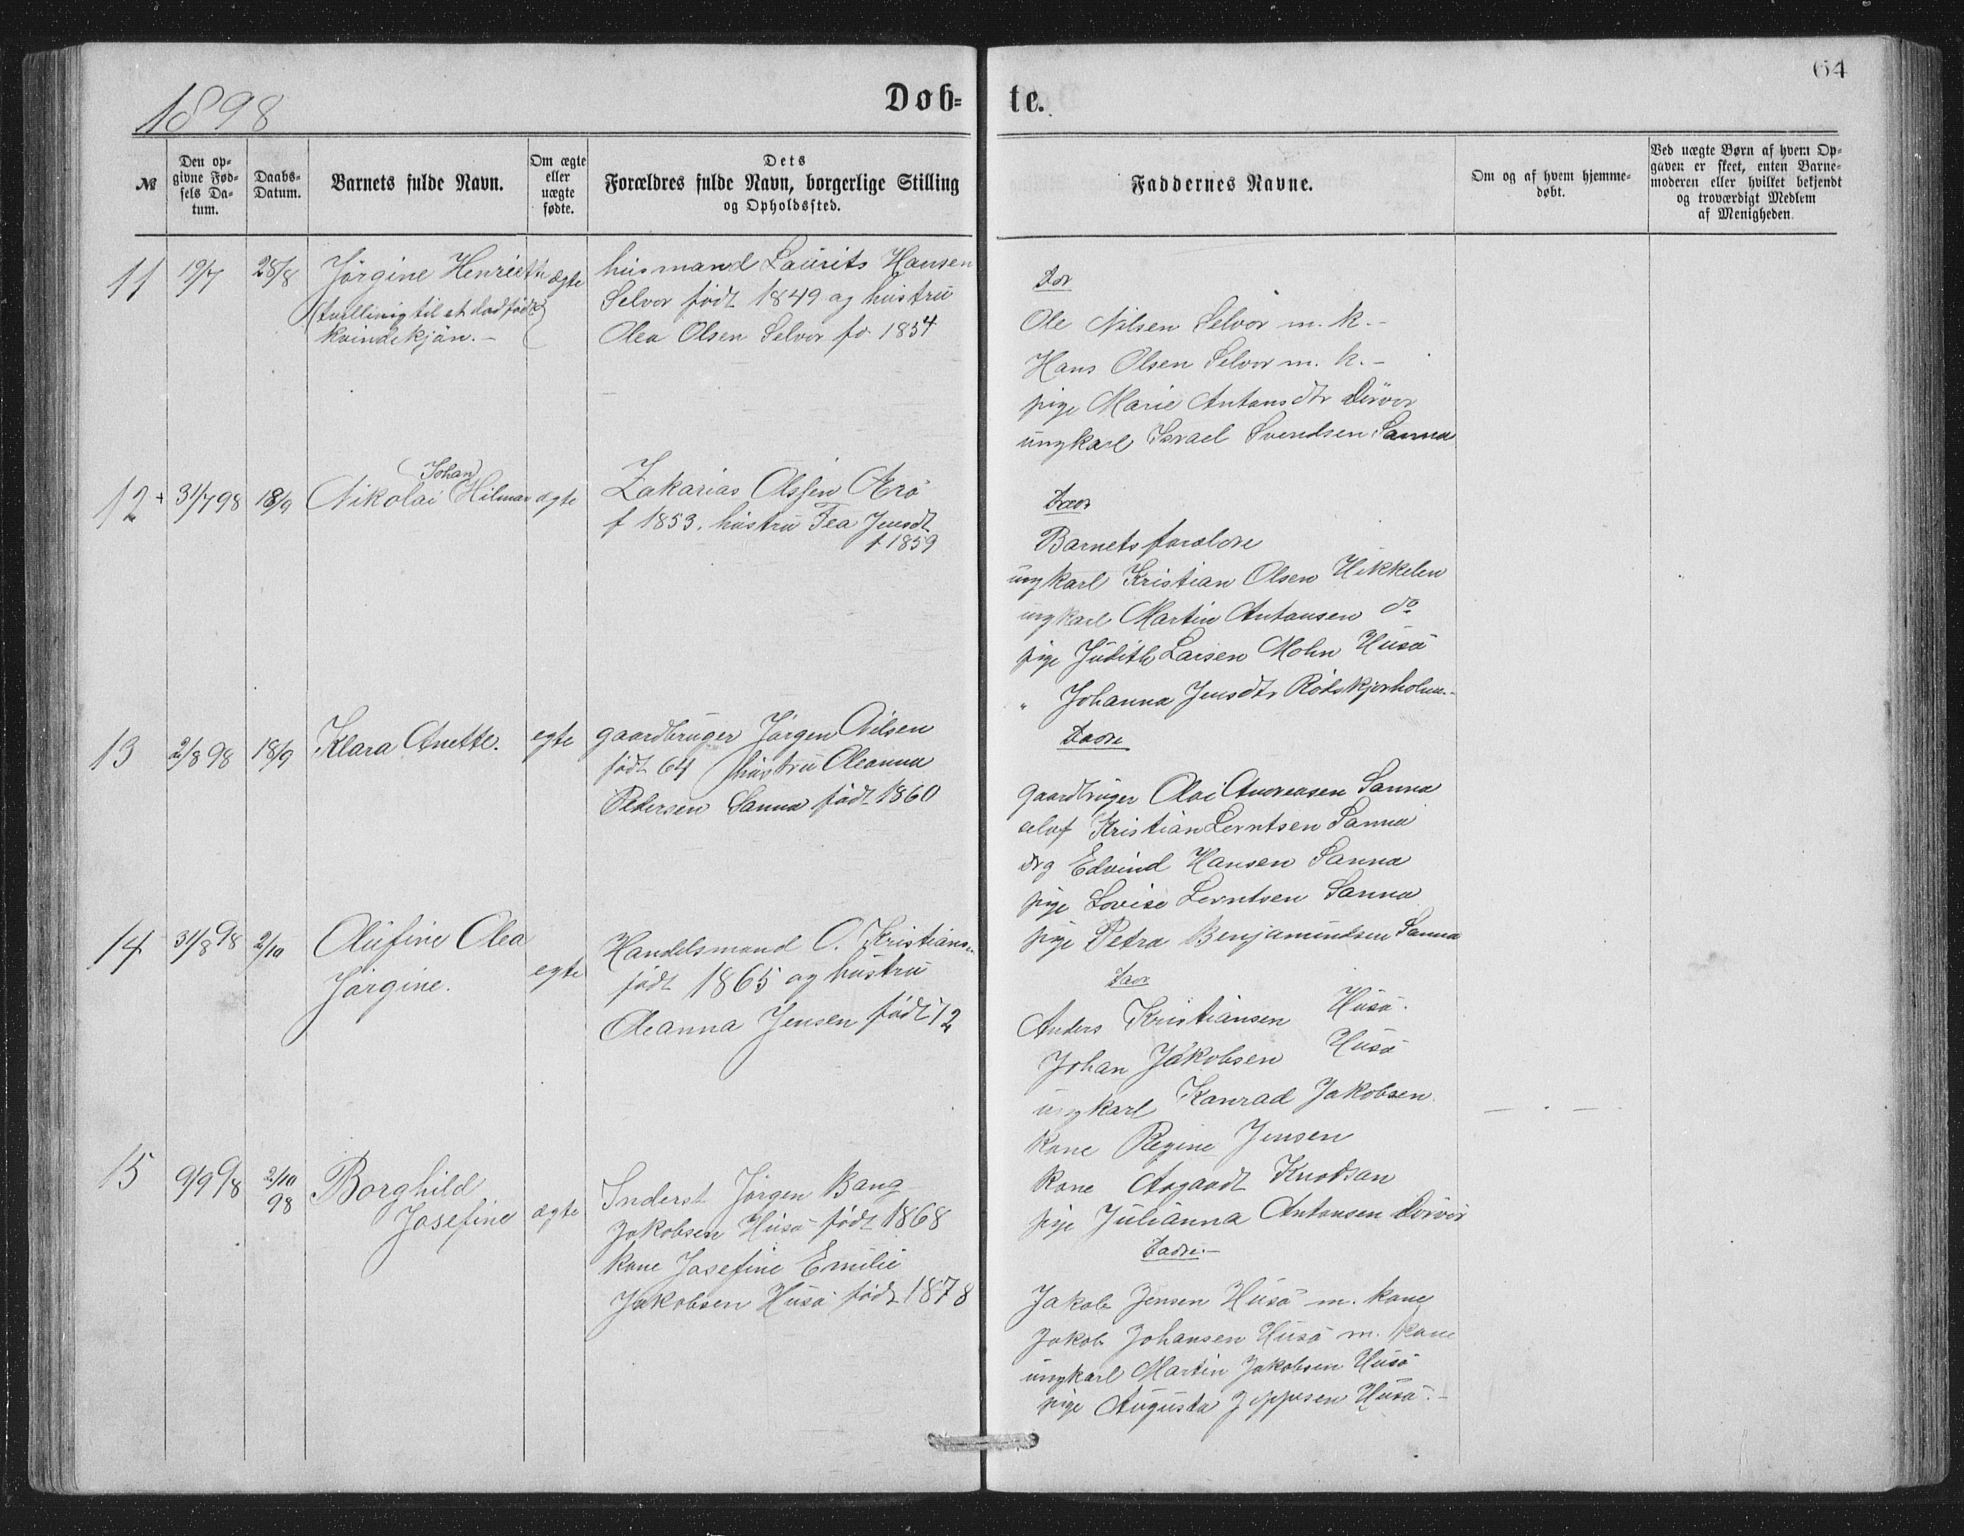 64
1898
Døb-
te.
№
Den op-
givne Fød-
sels Da-
tum.
Daabs-
Datum.
Barnets fulde Navn.
Om ægte
eller
uægte
fødte.
Dets
Forældres fulde Navn, borgerlige Stilling
og Opholdssted.
Faddernes Navne.
Om og af hvem hjemme-
døbt.
Ved uægte Børn af hvem Op-
gaven er skeet, enten Barne-
moderen eller hvilket bekjendt
og troværdigt Medlem
af Menigheden.
11 19/7 28/8 Jörgine Henriette ægte husmand Laurits Hansen
(tvilling til et dødfödt)
Selvor födt 1849 og hustru
kvindekjön.-
Olea Olsen Selvor fø 1854
Ole Nilsen Selvor m. k.-
Hans Olsen Selvor m. k.-
pige Marie Antonsdtr Dörvor
ungkarl Israel Svendsen Sanna
Johan
12 + 31/7 98 18/9 Nikolai Hilmar ægte Zakarias Olssen Ærö
f 1853. hustru Fea Jensdt.
f 1859
Barnets foreldre
ungkarl Kristian Olsen Hikkelen
ungkarl Martin Antonsen do
pige Judith Larsen Mohn Husö
" Johanna Jensdtr Rödskjærholm.-
13 2/8 98 18/9 Klara Anette. egte gaardbruger Jörgen Nilsen
födt 64 hustru Oleanna
Petersen Sanna födt 1860
Fadre
gaardbruger Olai Andreasen Sanna
Kristian Lorntsen Sanna
Edvind Hansen Sanna
pige Lovise Lorntsen Sanna
pige Petra Benjamindsen Sanna
14 31/8 98 2/10 Olufine Olea
Jörgine.
egte
Handelsmand O. Kristians-
födt 1865 og hustru
Oleanna Jensen födt 72
Anders Kristiansen Husö.
Johan Jakobsen Husö
ungkarl Konrad Jakobsen.
kone Regine Jensen
kone Aagaadt Knodsan
pige Julianna Antonsen Dörvör
15 9/9 98 2/10
98
Borghild
Josefine
ægte
Inderst Jörgen Bang
Jakobsen Husö födt 1868
kone Josefine Emilie
Jakobsen Husö födt 1878
Fadre.-
Jakob Jensen Husö m. kone
Jakob Johansen Husö m. kone
ungkarl Martin Jakobsen Husö
pige Augusta Jeppesen Husö.-